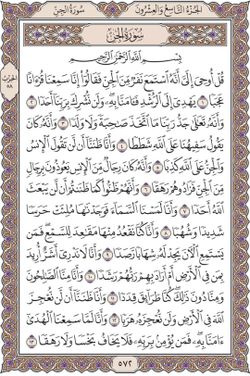 الجُزْءُ التَّاسِعُ وَالعِشْرُونَ
سُورَةُ الجِنِّ
سُورَةُ الجِنِّ
بِسْمِ ٱللَّهِ ٱلرَّحْمَٰنِ ٱلرَّحِيمِ
الحزب
٥٨
قُلْ أُوحِيَ إِلَيَّ أَنَّهُ ٱسْتَمَعَ نَفَرٌ مِّنَ ٱلْجِنِّ فَقَالُوٓاْ إِنَّا سَمِعْنَا قُرْءَانًا
عَجَبًا ١ يَهْدِيٓ إِلَى ٱلرُّشْدِ فَـَٔامَنَّا بِهِۦ وَلَن نُّشْرِكَ بِرَبِّنَآ أَحَدًا ٢
وَأَنَّهُۥ تَعَٰلَىٰ جَدُّ رَبِّنَا مَا ٱتَّخَذَ صَٰحِبَةً وَلَا وَلَدًا ٣ وَأَنَّهُۥ كَانَ
يَقُولُ سَفِيهُنَا عَلَى ٱللَّهِ شَطَطًا ٤ وَأَنَّا ظَنَنَّآ أَن لَّن تَقُولَ ٱلْإِنسُ
وَٱلْجِنُّ عَلَى ٱللَّهِ كَذِبًا ٥ وَأَنَّهُۥ كَانَ رِجَالٌ مِّنَ ٱلْإِنسِ يَعُوذُونَ بِرِجَالٍ
مِّنَ ٱلْجِنِّ فَزَادُوهُمْ رَهَقًا ٦ وَأَنَّهُمْ ظَنُّواْ كَمَا ظَنَنتُمْ أَن لَّن يَبْعَثَ
ٱللَّهُ أَحَدًا ٧ وَأَنَّا لَمَسْنَا ٱلسَّمَآءَ فَوَجَدْنَٰهَا مُلِئَتْ حَرَسًا
شَدِيدًا وَشُهُبًا ٨ وَأَنَّا كُنَّا نَقْعُدُ مِنْهَا مَقَٰعِدَ لِلسَّمْعِ ۖ فَمَن
يَسْتَمِعِ ٱلْـَٔانَ يَجِدْ لَهُۥ شِهَابًا رَّصَدًا ٩ وَأَنَّا لَا نَدْرِيٓ أَشَرٌّ أُرِيدَ
بِمَن فِي ٱلْأَرْضِ أَمْ أَرَادَ بِهِمْ رَبُّهُمْ رَشَدًا ١٠ وَأَنَّا مِنَّا ٱلصَّٰلِحُونَ
وَمِنَّا دُونَ ذَٰلِكَ ۖ كُنَّا طَرَآئِقَ قِدَدًا ١١ وَأَنَّا ظَنَنَّآ أَن لَّن نُّعْجِزَ
ٱللَّهَ فِي ٱلْأَرْضِ وَلَن نُّعْجِزَهُۥ هَرَبًا ١٢ وَأَنَّا لَمَّا سَمِعْنَا ٱلْهُدَىٰٓ
ءَامَنَّا بِهِۦ ۖ فَمَن يُؤْمِنۢ بِرَبِّهِۦ فَلَا يَخَافُ بَخْسًا وَلَا رَهَقًا ١٣
٥٧٢